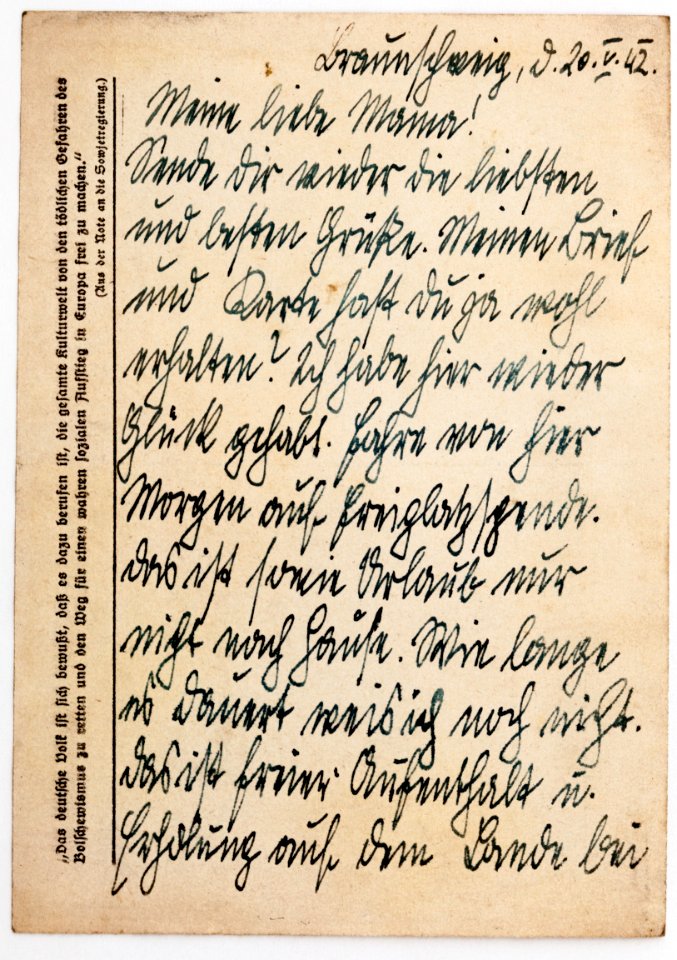 Braunschweig, d. 20.V.42.
Meine liebe Mama!
Sende dir wieder die liebsten
und besten Grüße. Meinen Brief
und Karte hast du ja wohl
erhalten? Ich habe hier wieder
Glück gehabt. Fahre von hier
Morgen auf Freiplatzspende.
das ist sowie Urlaub nur
nicht nach Hause. Wie lange
es dauert weis ich noch nicht.
das ist freier Aufenthalt u.
Erholung auf dem Lande bei
„Das deutsche Volk ist sich bewußt, daß es dazu berufen ist, die gesamte Kulturwelt von den tödlichen Gefahren des
Bolschewismus zu retten und den Weg für einen wahren sozialen Aufstieg in Europa frei zu machen.“
(Aus der Note an die Sowjetregierung.)